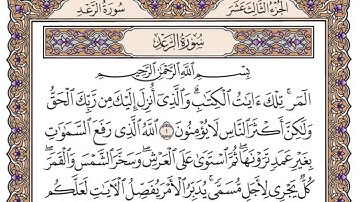 الجُزْءُ الثَّالِثَ عَشَرَ سُورَةُ الرَّعْدِ
سُورَةُ الرَّعْدِ
بِسْمِ ٱللَّهِ ٱلرَّحْمَٰنِ ٱلرَّحِيمِ
الٓمٓر ۚ تِلْكَ ءَايَٰتُ ٱلْكِتَٰبِ ۗ وَٱلَّذِىٓ أُنزِلَ إِلَيْكَ مِن رَّبِّكَ ٱلْحَقُّ
وَلَٰكِنَّ أَكْثَرَ ٱلنَّاسِ لَا يُؤْمِنُونَ ١ ٱللَّهُ ٱلَّذِى رَفَعَ ٱلسَّمَٰوَٰتِ
بِغَيْرِ عَمَدٍ تَرَوْنَهَا ۖ ثُمَّ ٱسْتَوَىٰ عَلَى ٱلْعَرْشِ ۖ وَسَخَّرَ ٱلشَّمْسَ وَٱلْقَمَرَ ۖ
كُلٌّ يَجْرِى لِأَجَلٍ مُّسَمًّى ۚ يُدَبِّرُ ٱلْأَمْرَ يُفَصِّلُ ٱلْءَايَٰتِ لَعَلَّكُم